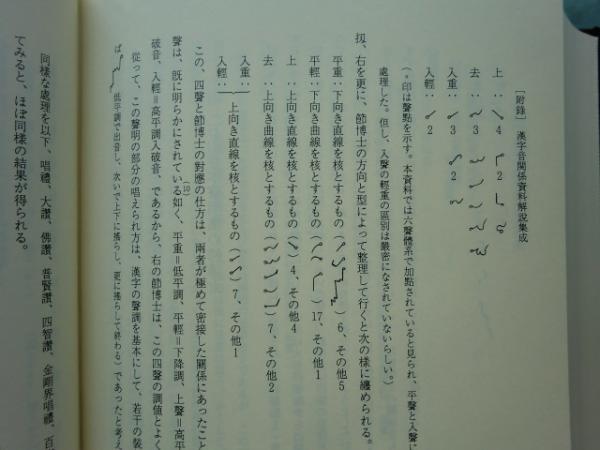 ［附錄］ 漢字音関係資料解説集成
上： 4 2
去： 3
入重： 3 2
入輕： 2
（。印は聲點を示す。本資料では六聲體系で加點されていると見られ、平聲と入聲に
處理した。但し、入聲の輕重の區別は嚴密になされていないらしい。）
扨、右を更に、節博士の方向と型によって整理して行くと次の様に纏められる。
平重：下向き直線を核とするもの（ ）6、その他5
平輕：下向き曲線を核とするもの（ ）17、その他1
上：上向き直線を核とするもの（ ）4、その他4
去：上向き曲線を核とするもの（ ）7、その他2
入重：
入輕： 上向き直線を核とするもの（ ）7、その他1
この、四聲と節博士の對應の仕方は、兩者が極めて密接した關係にあったこと
聲は、既に明らかにされている如く、(10)平重＝低平調、平輕＝下降調、上聲＝高平
破音、入輕＝高平調入破音、であるから、右の節博士は、この四聲の調値とよく
從って、この聲明の部分の唱えられ方は、漢字の聲調を基本にして、若干の裝
ば 低平調で出音し、次いで上下に搖らし、更に搖らして終わる）であったと考え
同様な處理を以下、唱禮、大讃、佛讃、普賢讃、四智讃、金剛界唱禮、百
てみると、ほぼ同樣の結果が得られる。